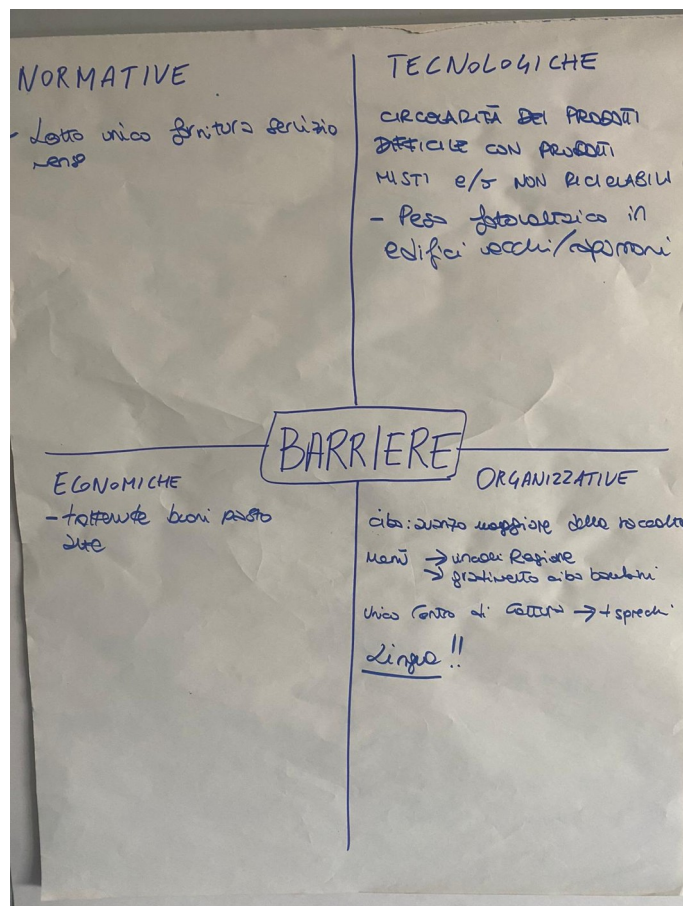 NORMATIVE
- Lotto unico fornitura servizio
mensa
TECNOLOGICHE
CIRCOLARITÀ DEI PRODOTTI
DIFFICILE CON PRODOTTI
MISTI e/o NON RICICLABILI
- Peso fotovoltaico in
edifici vecchi/capannoni
BARRIERE
ECONOMICHE
- trattenute buoni pasto
alte
ORGANIZZATIVE
cibo: avanzo maggiore della raccolta
Menù → vincoli Regione
→ gradimento cibo bambini
Unico Centro di Cottura → + sprechi
Lingua!!